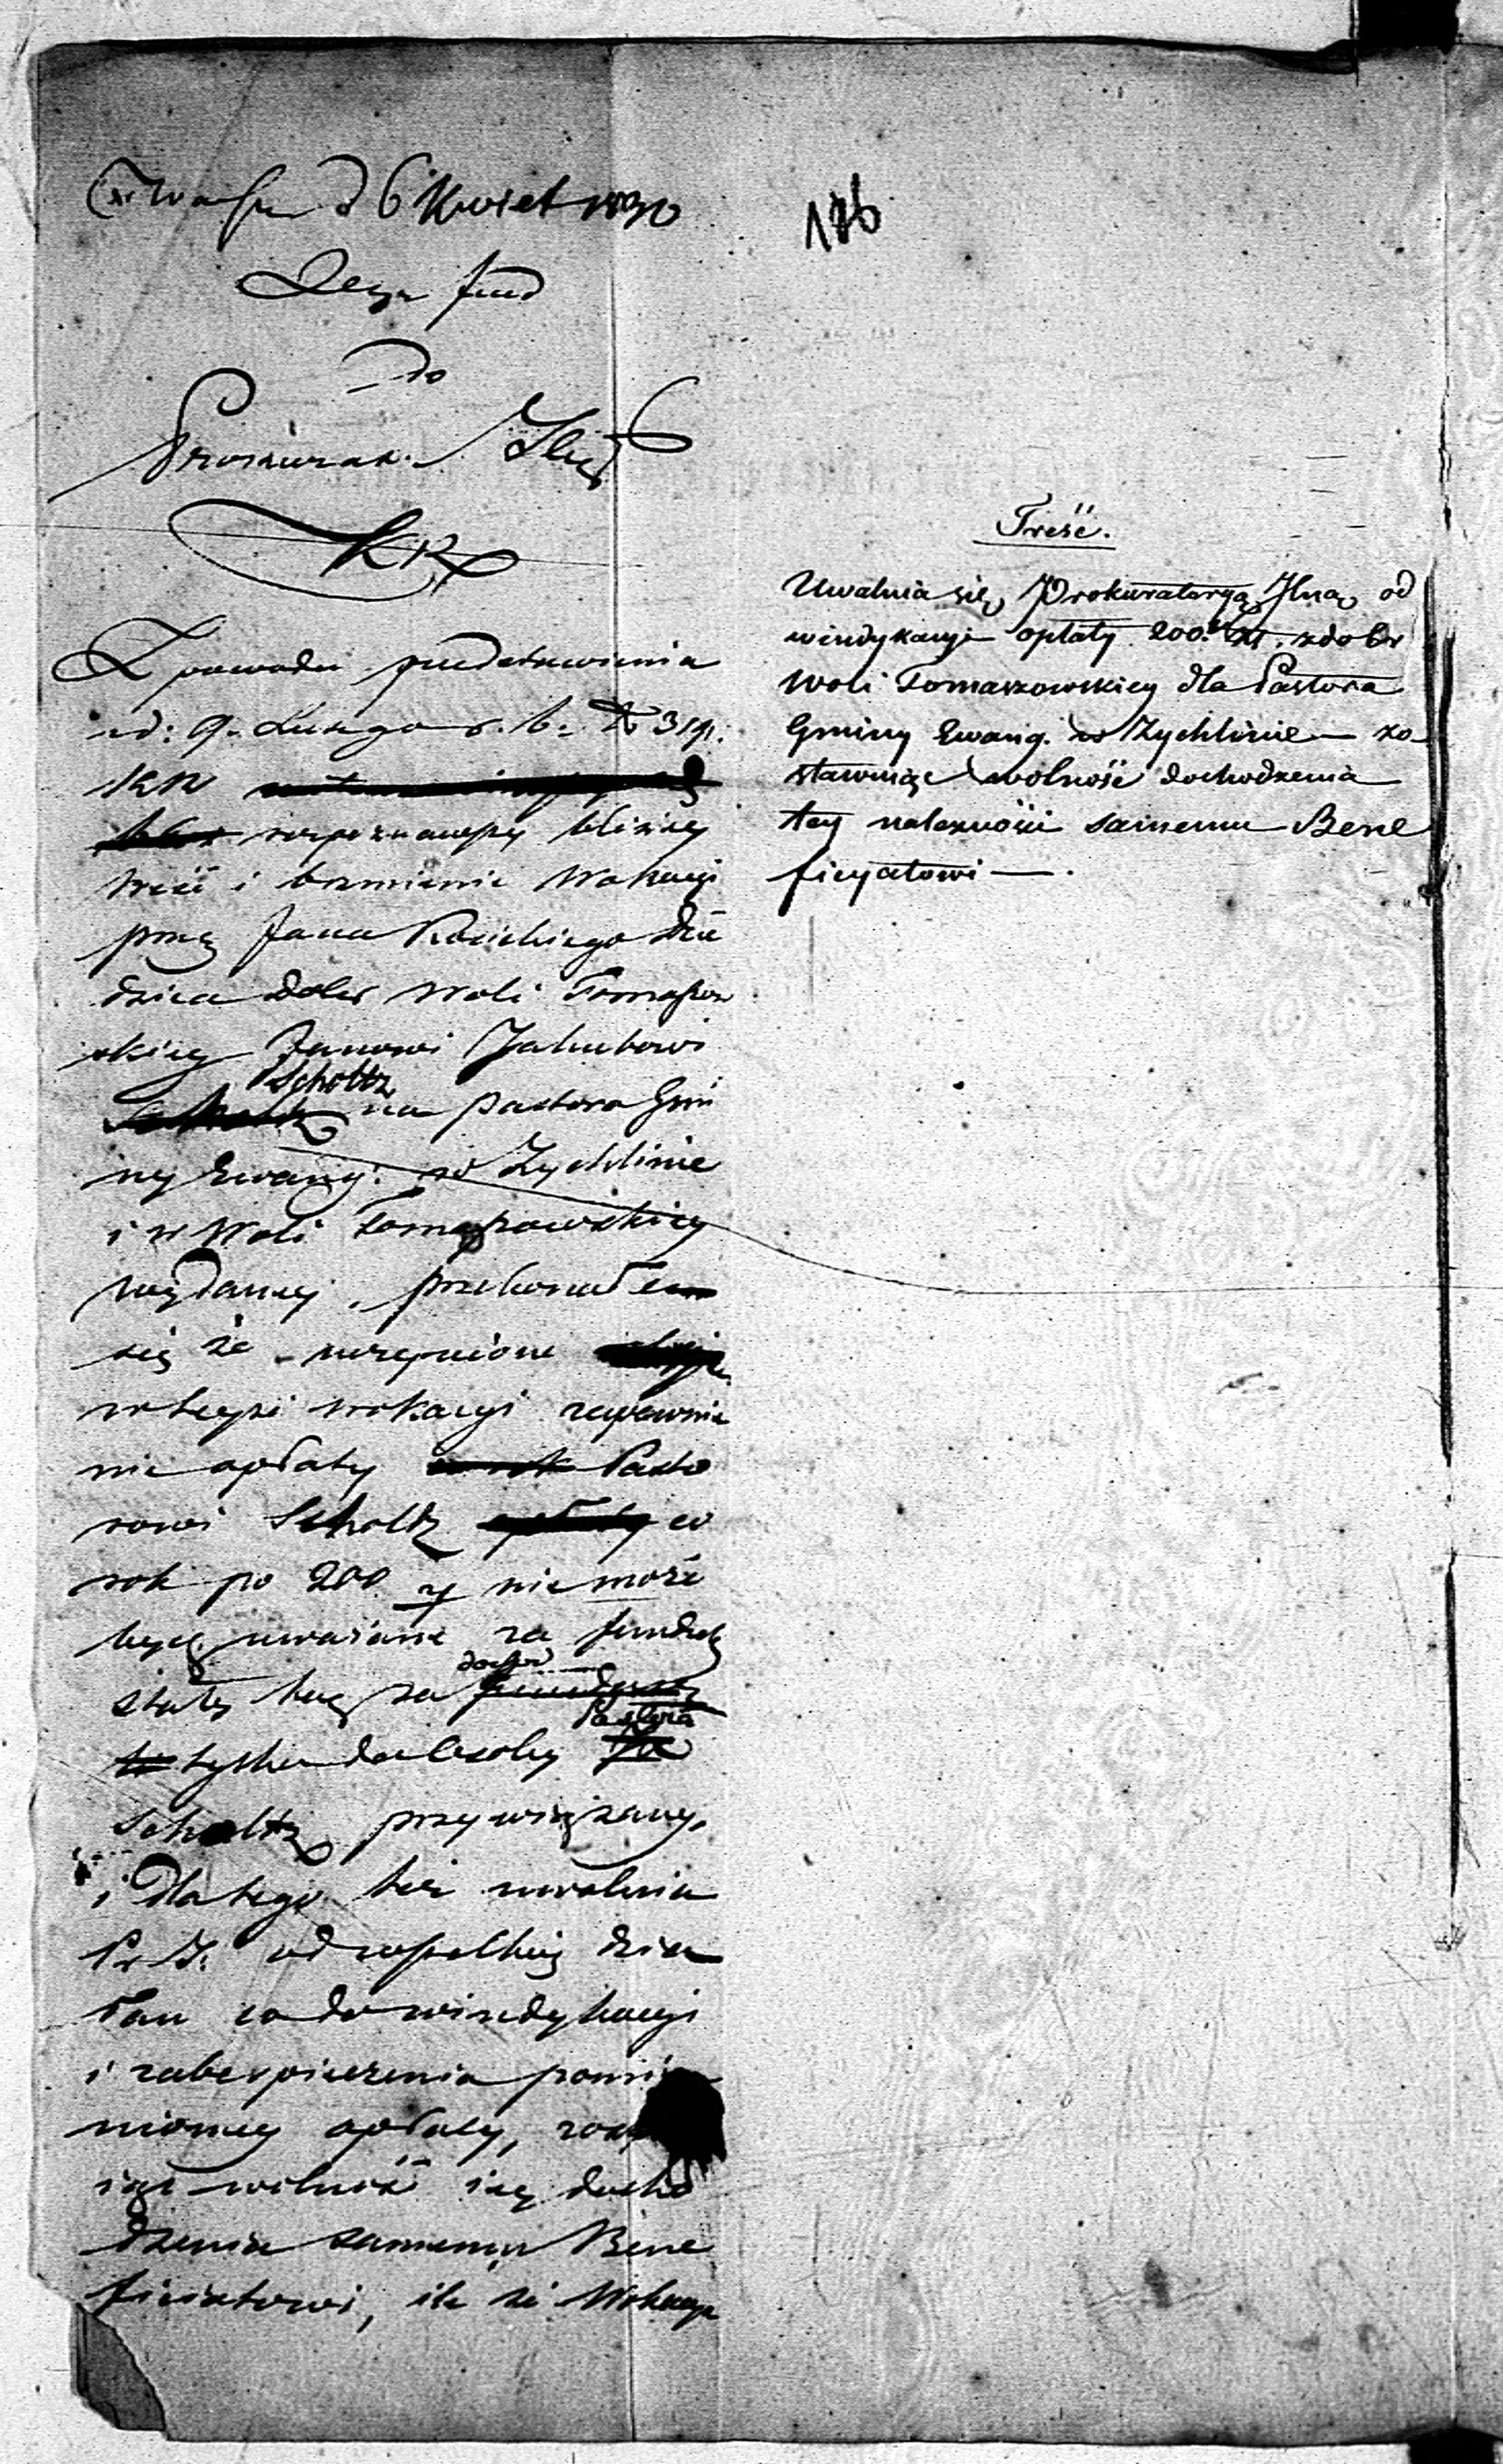 w Warsza d 6 Kwiet 1830
186
do
Prokurat. Jlney
KR
Z powodu przedstawienia
z d: 9. Lutego r. b. N 3191.
KR
rozpoznawszy bliżey
treść i brzmienie Wokacyi
przez Jana Kocickiego dzie
dzica dobr Woli Tomaszow
skiey Janowi Jakubowi
Scholtz na pastora Gmi
ny Ewang: w Zychlinie
i w Woli Tomaszowskiey
wydaney, przekonałem
się że
w teyże wokacyi zapewnie
nie opłaty Pasto
rowi Scholtz co
rok po 200 zł nie może
być uważane za fundusz
stały lecz za dochod
tylko do osoby Pastora
Scholtz przywiązany,
i dla tego też uwalnia
Pr J. od wszelkiej dzia
łań co do windykacyi
i zabezpieczenia pomie
nioney opłaty,
wolność iey docho
dzenia samemu Bene
ficiatowi, ile że Wokacya
Treść.
Uwalnia się Prokuratoryą Jlną od
windykacyi opłaty 200. zł. z dobr
Woli Tomaszowskiey dla Pastora
Gminy Ewang. w Zychlinie — zo-
stawuiąc wolność dochodzenia
tey należności samemu Bene
ficyatowi —.